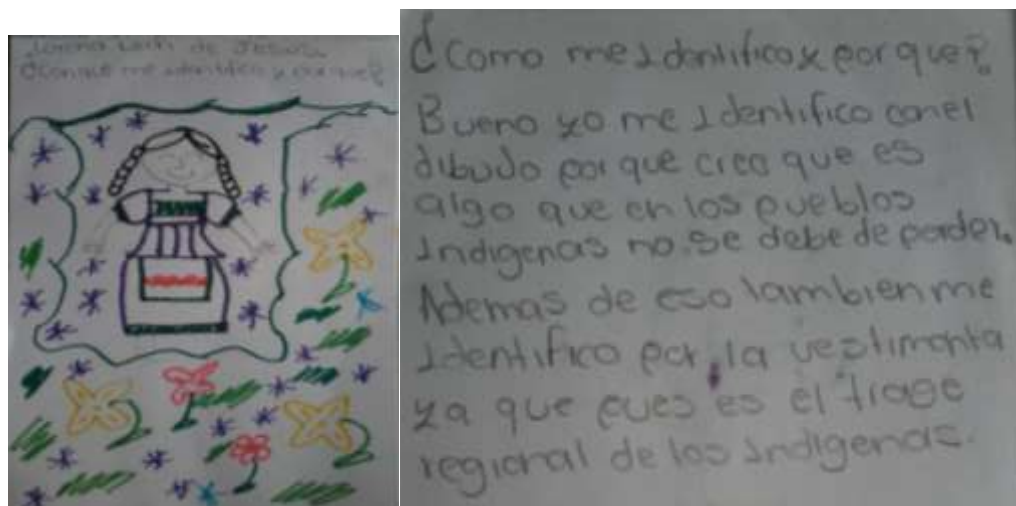 de Jesus
¿Con que me identifico y porque?
¿Como me Identifico y por que?
Bueno yo me Identifico con el
dibudo por que creo que es
algo que en los pueblos
Indigenas no se debe de perder.
Ademas de eso tambien me
Identifico por la vestimenta
ya que pues es el trage
regional de los Indigenas.